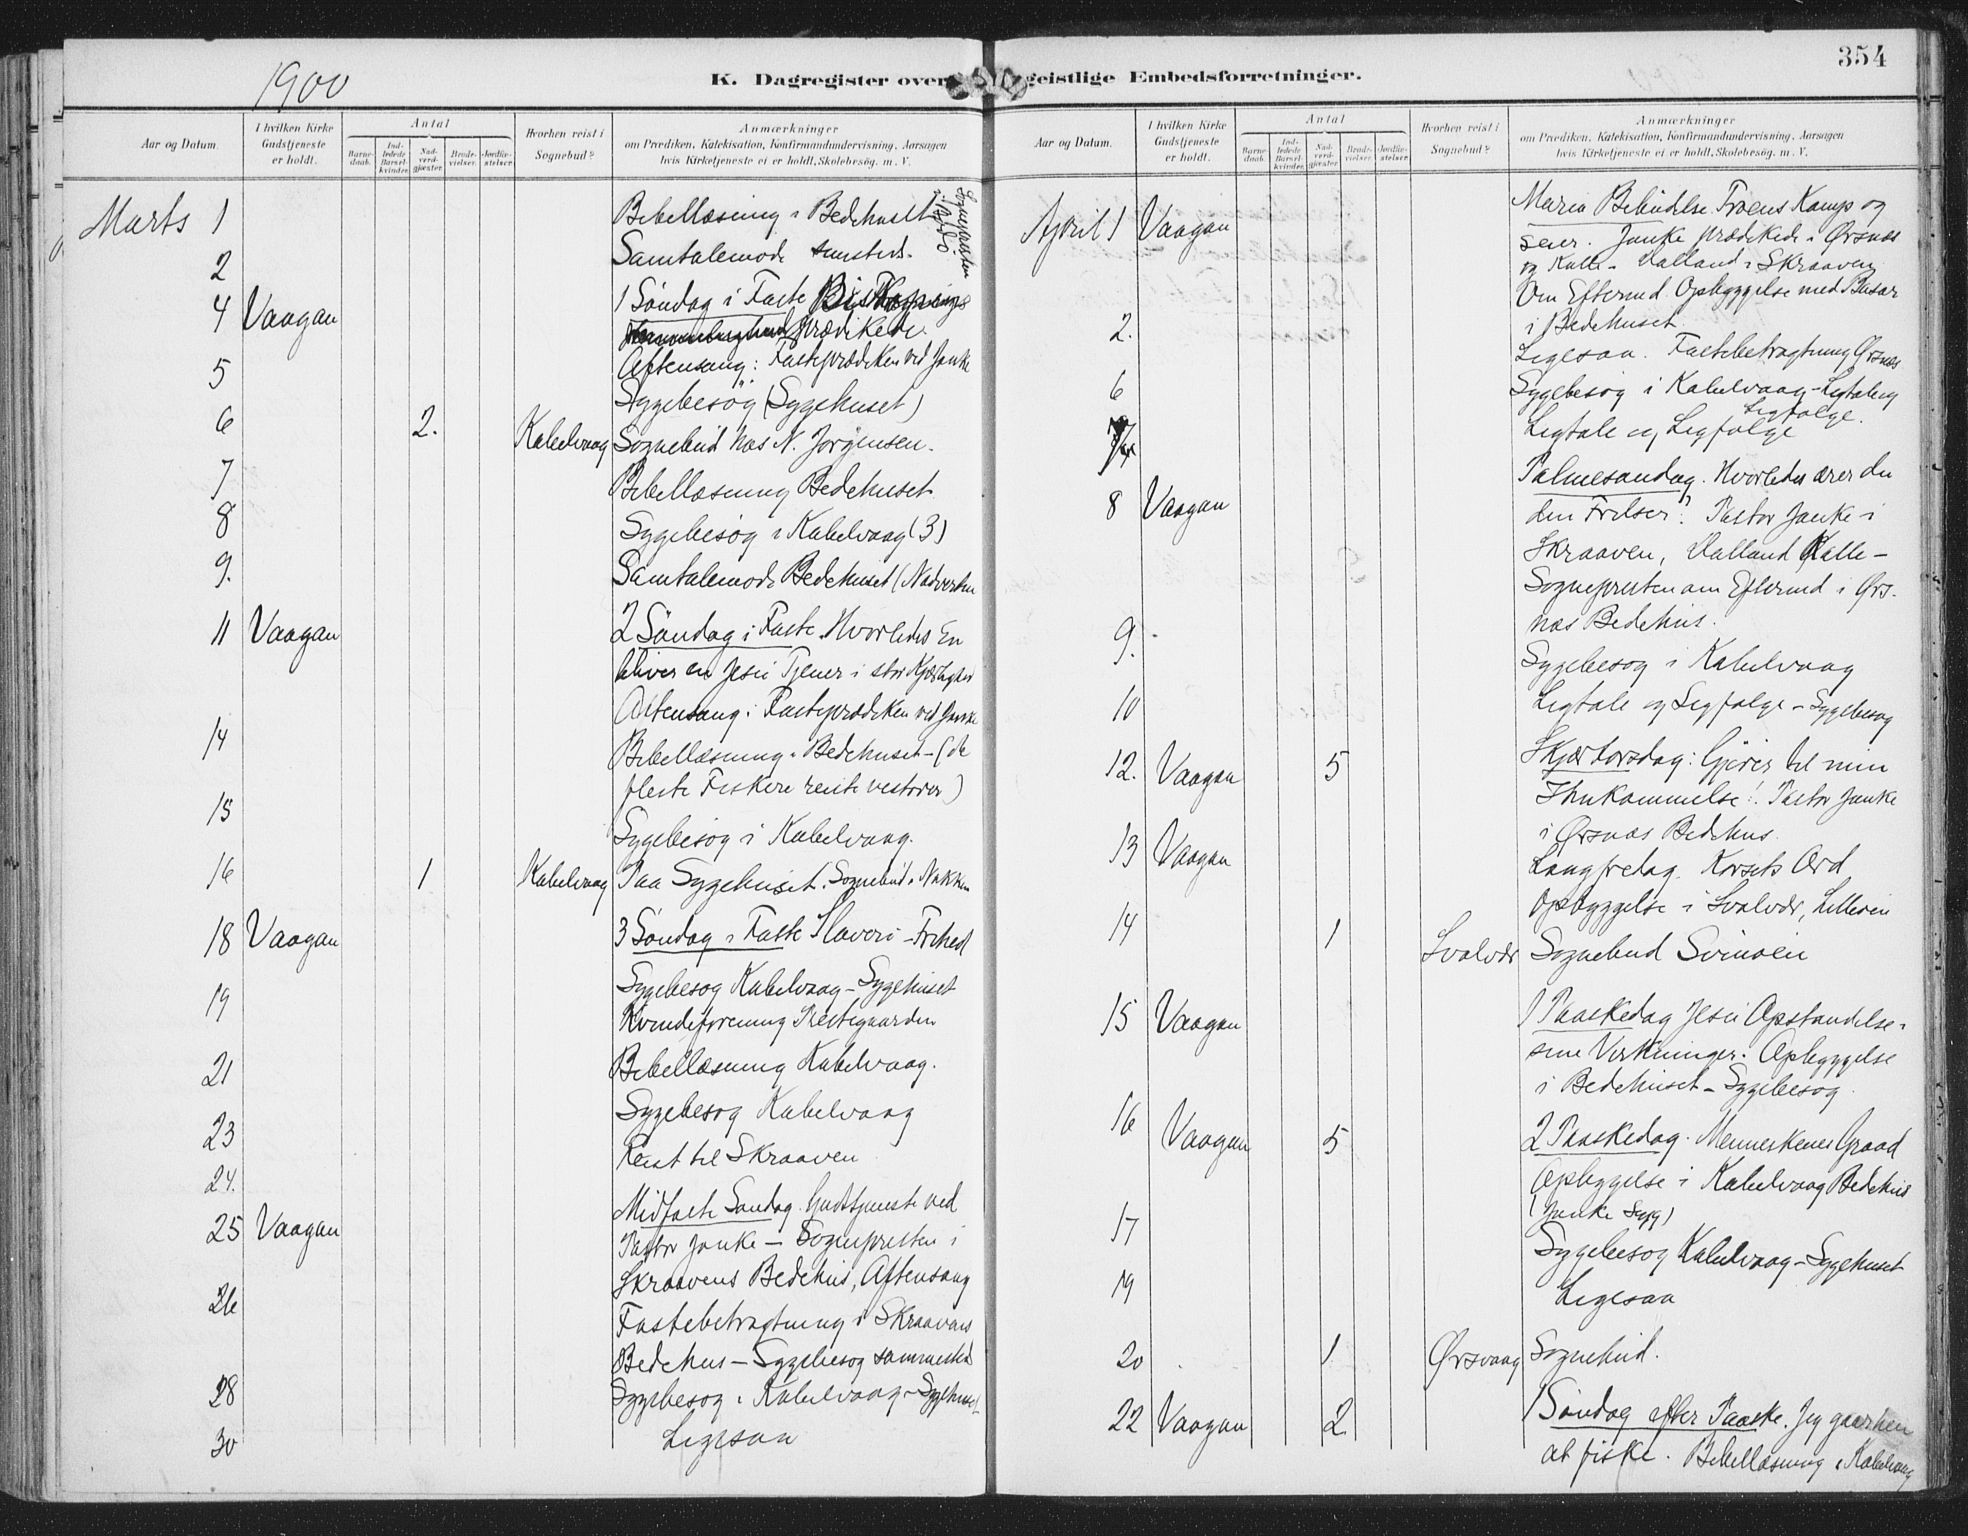 1900
K. Dagregister over geistlige Embedsforretninger.
354
Aar og Datum.
I hvilken Kirke Gudstjeneste er holdt.
Antal
Barnedaab.
Indledede Barselkvinder.
Nadverdgjæster.
Brudevielser.
Jordfæstelser.
Hvorhen reist i Sognebud?
Anmærkninger
om Prædiken, Katekisation, Konfirmandundervisning, Aarsagen
hvis Kirketjeneste ei er holdt, Skolebesøg. m. V.
Marts 1 Bibellæsning i Bedehuset Sognepresten i Bodö
2 Samtalemøde
4 Vaagan 1 Söndag i Faste
prædikede
Aftensang: Fasteprædiken ved Janke
5 Sygebesög (Sygehuset)
6 2. Kabelvaag Sognebud hos N. Jorgensen.
7 Bibellæsning Bedehuset
8 Sygebesög i Kabelvaag (3)
9. Samtalemöde Bedehuset (Nadverden
11 Vaagan 2 Söndag i Faste. Hvorledes En
bliver en Jesu Tjener i stor Kjærlighed
Aftensang: Fasteprædiken ved Janke
14 Bibellæsning i Bedehuset - (de
fleste Fiskere reiste vestover)
15 Sygebesög i Kabelvaag.
16 1 Kabelvaag Paa Sygehuset. Sognebud
18 Vaagan 3 Söndag i Faste Slaveri - Frihed
19 Sygebesog Kabelvaag - Sygehuset
Kvindeforening Prestegaarden
21 Bibellæsning Kabelvaag.
23 Sygebesog Kabelvaag
24. Reist til Skraaven
25 Vaagan Midfaste Sondag. Gudstjeneste ved
Pastor Janke - Sognepresten i
Skraavens Bedehus, Aftensang
26 Fastebetragtning i Skraavens
Bedehus - Sygebesog sammested
28 Sygebesog i Kabelvaag - Sygehuset
30 Ligesaa
Aar og Datum.
I hvilken Kirke Gudstjeneste er holdt.
Antal
Barnedaab.
Indledede Barselkvinder.
Nadverdgjæster.
Brudevielser.
Jordfæstelser.
Hvorhen reist i Sognebud?
Anmærkninger
om Prædiken, Katekisation, Konfirmandundervisning, Aarsagen
hvis Kirketjeneste ei er holdt, Skolebesøg. m. V.
April 1 Vaagan Maria Bebudelse. Troens Kamp og
seier. Janke prædikede i Ørsnes
og Kalle - Valland i Skraaven
Om Eftermd. Opbyggelse med Basar
i Bedehuset
2. Ligesaa. Fastebetragtning Ørsnes
6 Sygebesog i Kabelvaag - Ligtale og
Ligfølge.
7 Ligtale og Ligfølge
8 Vaagan Palmesøndag. Hvorledes ærer du
din Frelser? Pastor Janke i
Skraaven, Valland Kalle -
Sognepresten om Eftermd i Ørs-
nes Bedehus.
9. Sygebesog i Kabelvaag
10 Ligtale og Ligfølge - Sygebesog
12. Vaagan 5 Skjærtorsdag: Gjører det til min
Ihukommelse! Pastor Janke
i Ørsnæs Bedehus.
13 Vaagan Langfredag. Korsets Ord
Opbyggelse i Svolvær,
14 1 Svolvær Sognebud Svinøen
15 Vaagan 1 Paaskedag Jesu Opstandelse i
sine Virkninger. Opbyggelse
i Bedehuset - Sygebesog.
16 Vaagan 5 2 Paaskedag. Menneskenes Graad
Opbyggelse i Kabelvaag Bedehus
(Janke syg)
17 Sygebesog Kabelvaag - Sygehuset
19 Ligesaa
20 1 Ørsvaag Sognebud.
22 Vaagan 2 1 Söndag efter Paaske. Jeg gaar hen
at fiske. Bibellæsning i Kabelvaag